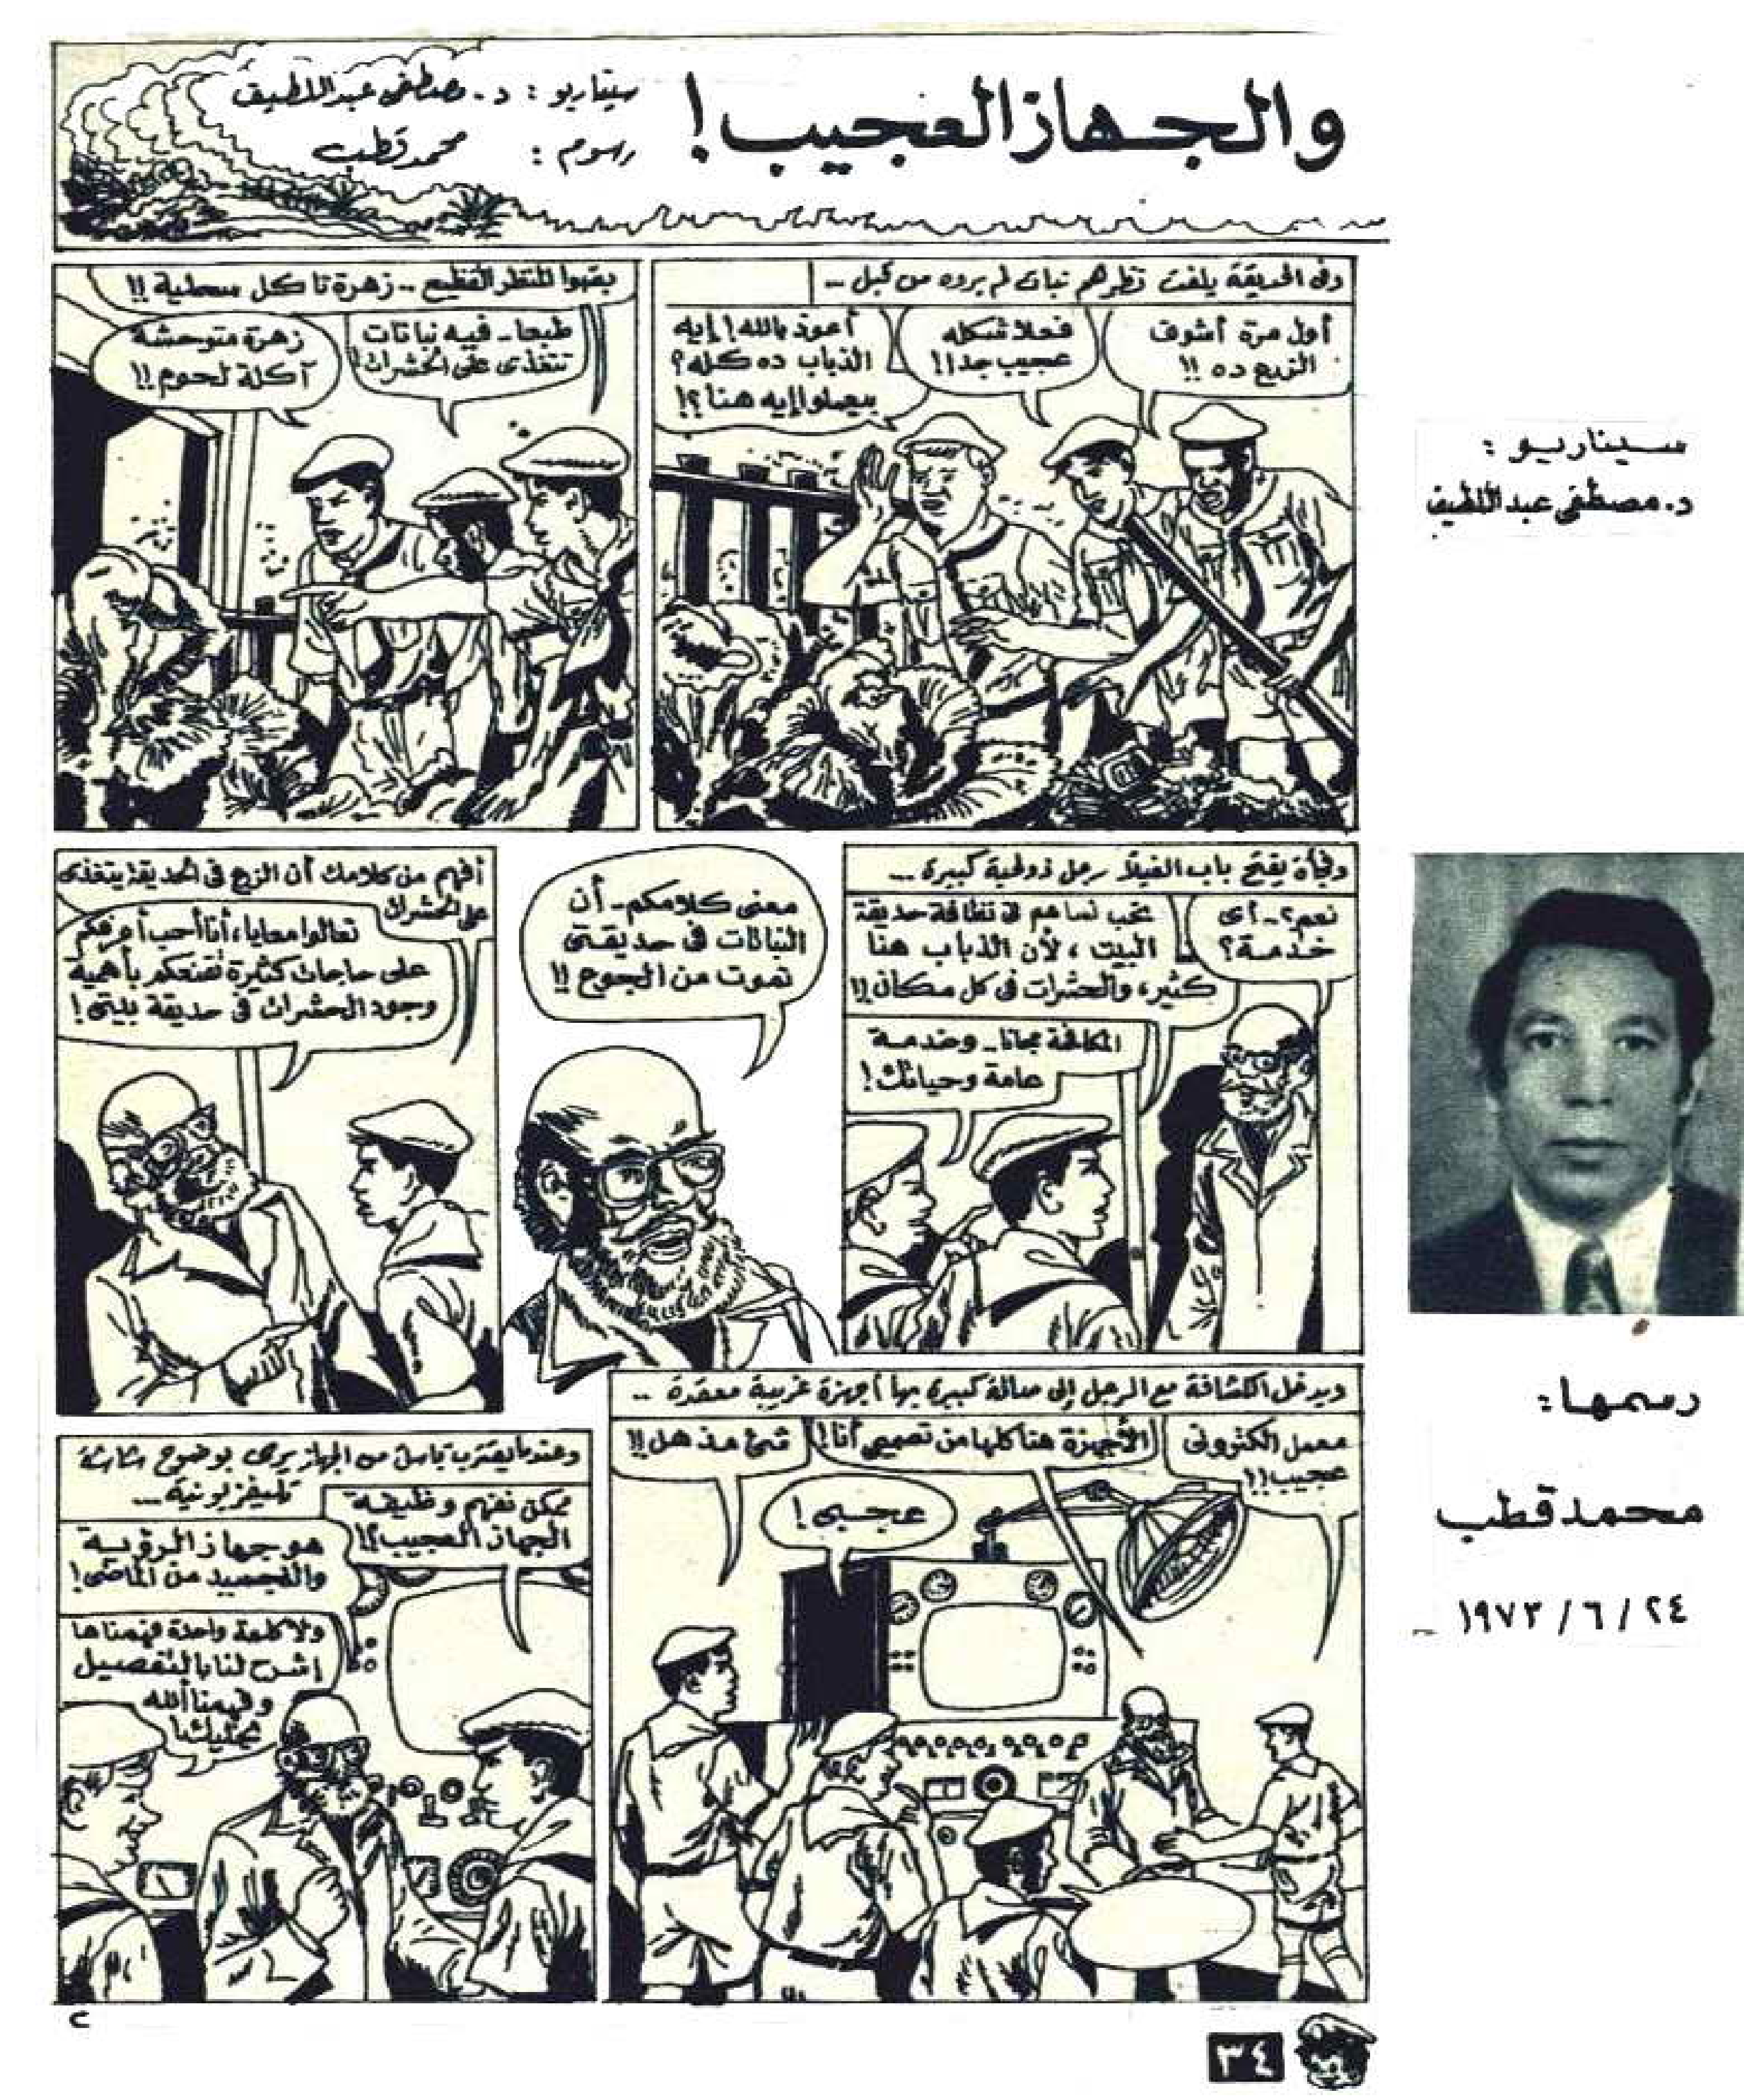 والجهاز العجيب!
سيناريو: د. مصطفى عبد اللطيف
رسوم: محمد قطب
وفى الحديقة يلفت نظرهم نبات لم يروه من قبل ..
أول مرة أشوف
الزرع ده !!
فعلا شكله
عجيب جدا!!
أعوذ بالله! إيه
الذباب ده كله؟
بيعملوا إيه هنا؟!
المنظر الفظيع .. زهرة تأكل سحلية !!
طبعا - فيه نباتات
تتغذى على الحشرات!
زهرة متوحشة
آكلة لحوم !!
وفجأة يفتح باب الفيلا رجل ذو لحية كبيرة ...
نعم؟ - أى
خدمة؟
نحب نساهم فى نظافة حديقة
البيت ، لأن الذباب هنا
كثير، والحشرات فى كل مكان !!
المكافحة مجانا - وخدمة
عامة وحياتك!
معنى كلامكم - أن
النباتات فى حديقتى
تموت من الجوع !!
أفهم من كلامك أن الزرع فى الحديقة يتغذى
على الحشرات
تعالوا معايا، أنا أحب أعرفكم
على حاجات كثيرة تقنعكم بأهمية
وجود الحشرات فى حديقة بيتى!
ويدخل الكشافة مع الرجل إلى صالة كبيرة بها أجهزة غريبة معقدة ..
معمل الكترونى
عجيب!!
الأجهزة هنا كلها من تصميمى أنا!
شئ مذهل!!
عجبى!
وعندما يقترب باسل من الجهاز يرى بوضوح شاشة
تليفزيونية ...
ممكن نفهم وظيفة
الجهاز العجيب؟!
هو جهاز الرؤية
والتجسيد من الماضى!
ولا كلمة واحدة فهمناها
إشرح لنا بالتفصيل
وفهمنا الله
يخليك!
٢
٣٤
سيناريو:
د. مصطفى عبد اللطيف
رسمها:
محمد قطب
٢٤ / ٦ / ١٩٧٣